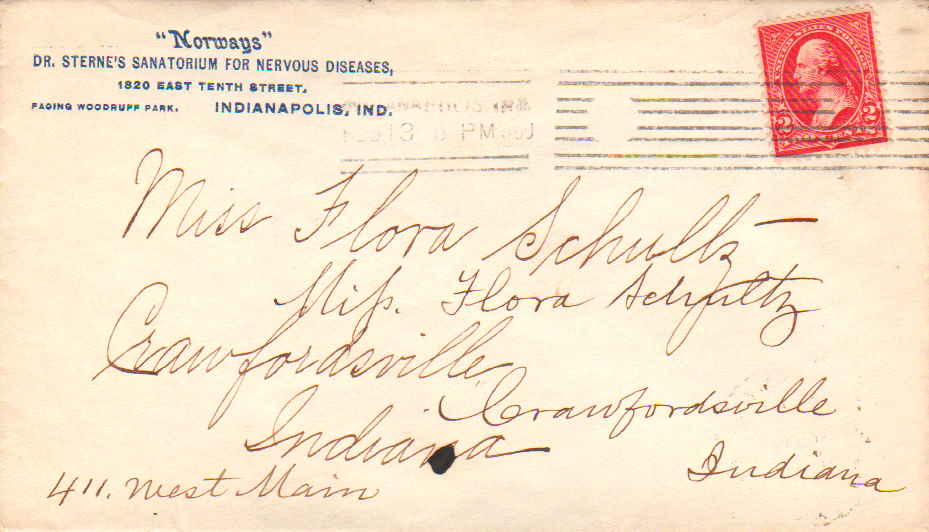 "Norways"
DR. STERNE'S SANATORIUM FOR NERVOUS DISEASES,
1820 EAST TENTH STREET,
FACING WOODRUFF PARK. INDIANAPOLIS, IND.
UNITED STATES POSTAGE
2 2
PM
Miss Flora Schultz
Miss. Flora Schultz
Crawfordsville
Crawfordsville
Indiana
Indiana
411. West Main